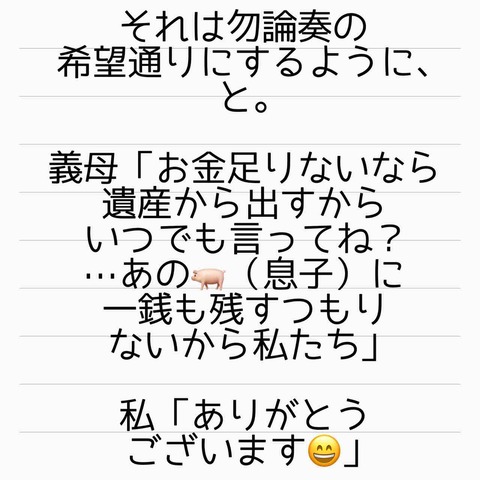 それは勿論奏の
希望通りにするように、
と。
義母「お金足りないなら
遺産から出すから
いつでも言ってね？
…あの🐖（息子）に
一銭も残すつもり
ないから私たち」
私「ありがとう
ございます😄」